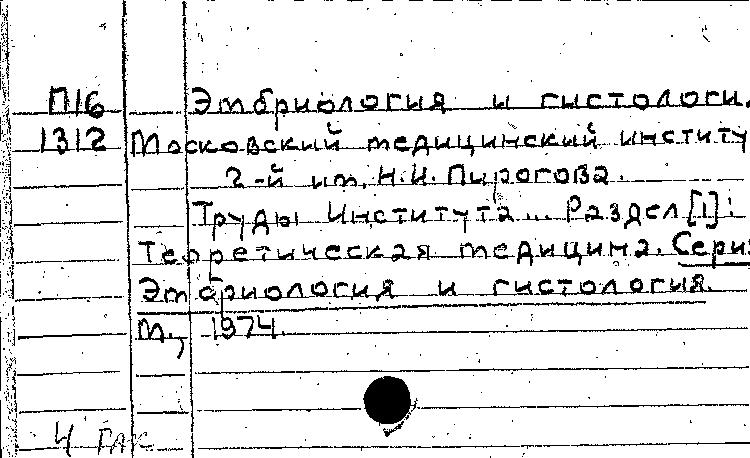 П16 Эмбриология и гистологи
1312 Московский медицинский институ
2-й им. Н.И. Пирогова.
Труды Института... Раздел [1]:
Теоретическая медицина. Сери
Эмбриология и гистология.
М., 1974.
4 ГАК